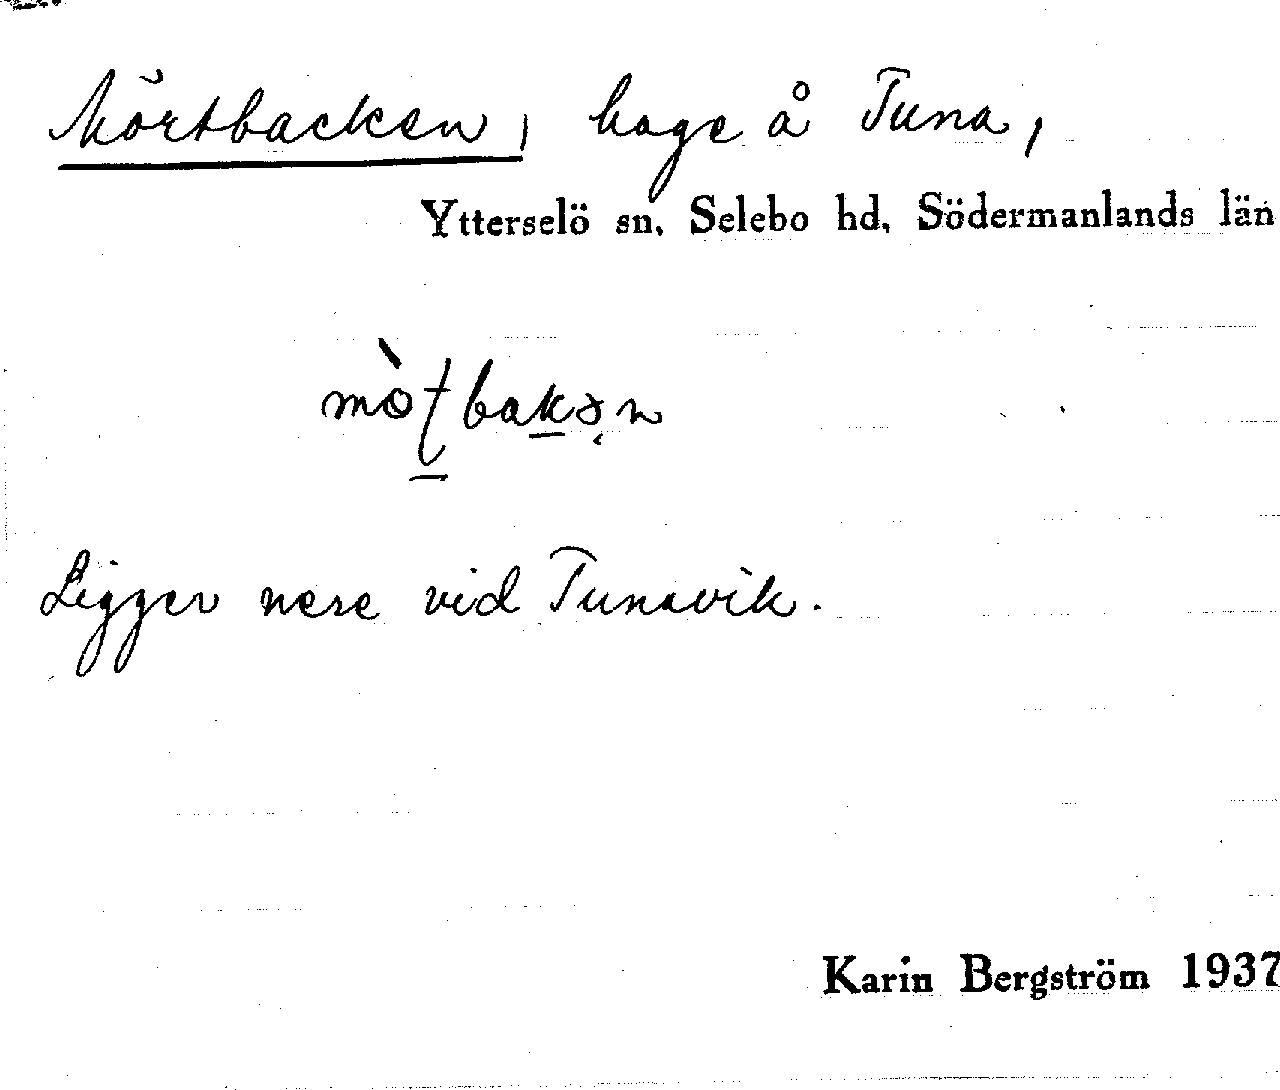 Mörtbacken, hage å Tuna,
Ytterselö sn, Selebo hd, Södermanlands län
Ligger nere vid Tunavik.
Karin Bergström 1937